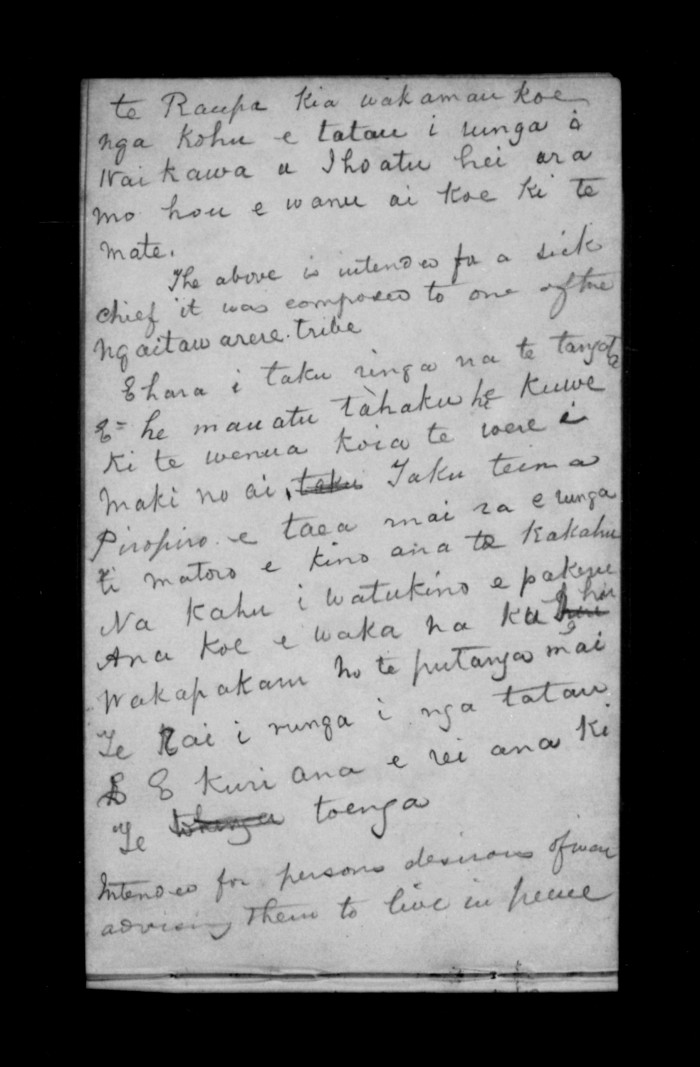 te Raupa Kia wakamau koe
nga Kohu e tatau i runga o
Waikawa u Ihoatu hei ara
mo hou e wanu ai koe ki te
mate.
The above is intended for a sick
chief it was composed to one of the
Ngaitawarere tribe
Ehara i taku ringa na te tangata
E= he mauatu tàhaku he kuwe
ki te wenua koia te were i
maki no ai, Taku teina
Piropiro e taea mai ra e runga
ti matoro e kino ana te Kakahu
Na Kahu i watukino e pakeue
Ana koe e waka na Ku hu
Wakapakaru no te putanga mai
Te Rai i runga i nga tatau
E kuri ana e rei ana ki
Te toenga
Intended for persons desirous of war
advising them to live in peace